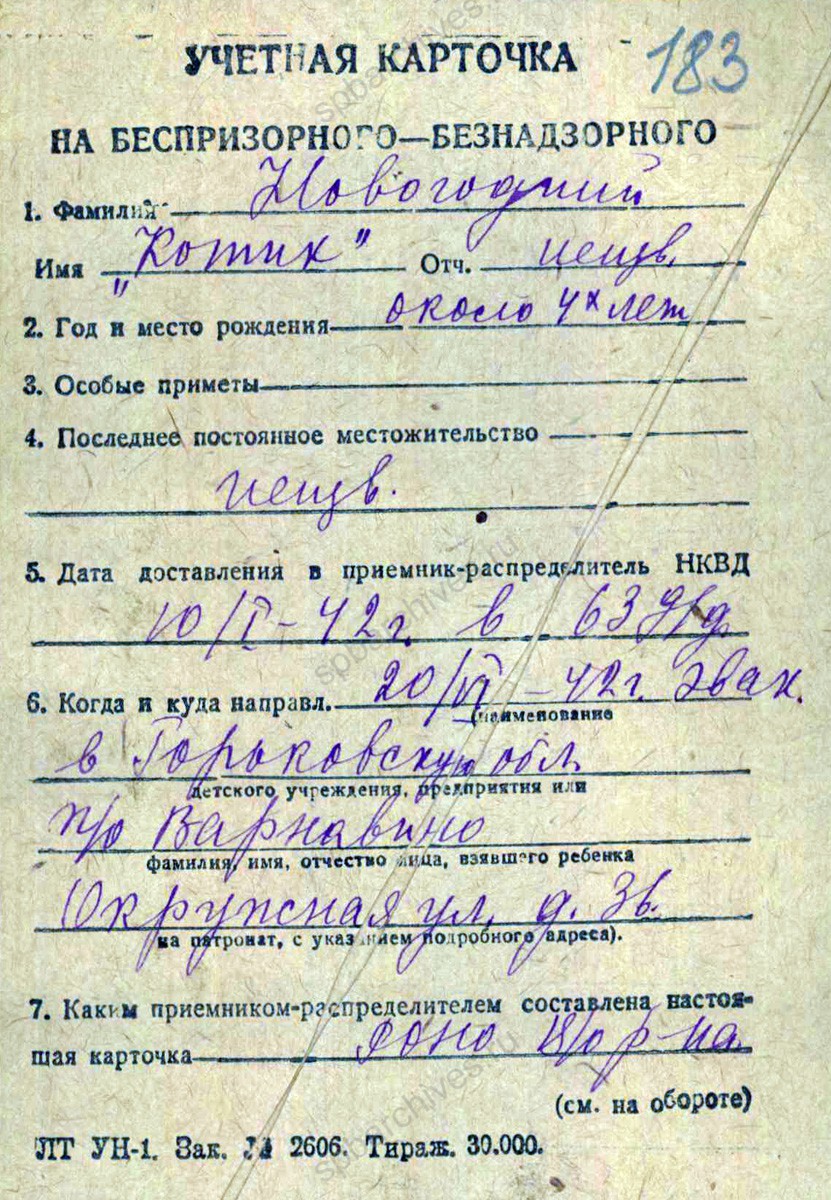 УЧЕТНАЯ КАРТОЧКА 183
НА БЕСПРИЗОРНОГО—БЕЗНАДЗОРНОГО
1. Фамилия Новогодний
Имя "Котик" Отч. неизв.
2. Год и место рождения около 4х лет
3. Особые приметы
4. Последнее постоянное местожительство
неизв.
5. Дата доставления в приемник-распределитель НКВД
10/I-42 г. в 63 д/д
6. Когда и куда направл. 20/VI-42 г. эвак.
(наименование
в Горьковскую обл.
детского учреждения, предприятия или
п/о Варнавино
фамилия, имя, отчество лица, взявшего ребенка
Окружная ул. д. 36.
на патронат, с указанием подробного адреса).
7. Каким приемником-распределителем составлена настоя-
щая карточка РОНО р-на
(см. на обороте)
ЛТ УН-1. Зак. № 2606. Тираж. 30.000.
spbarchives.ru